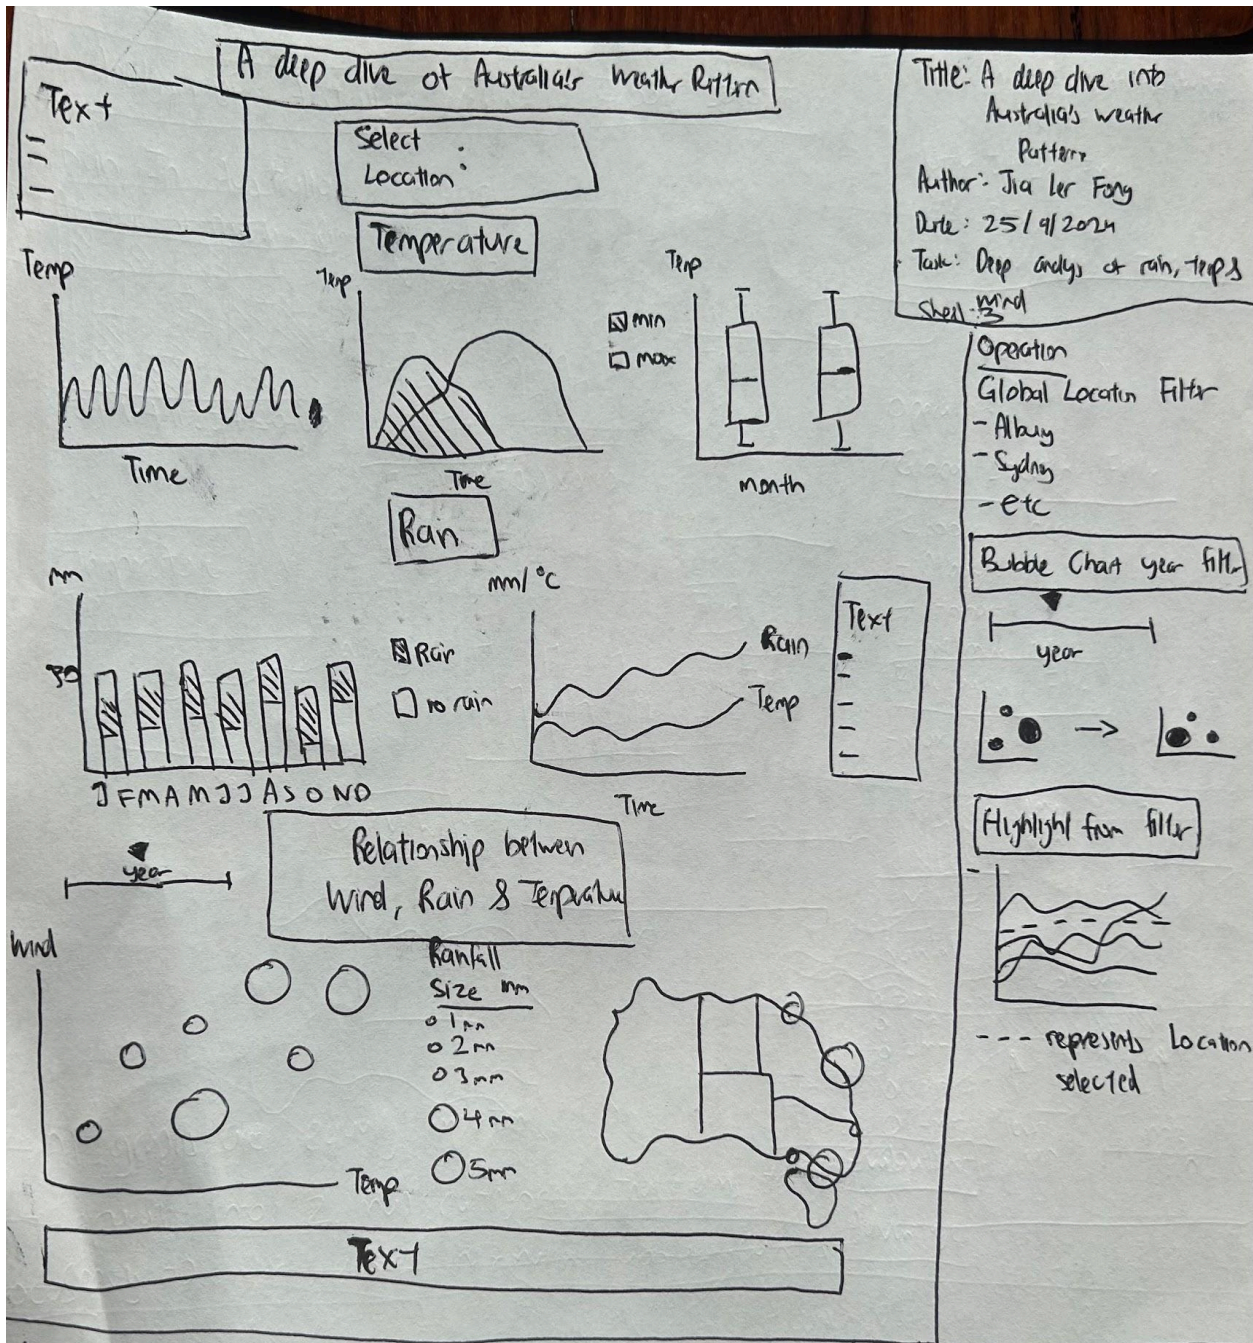 A deep dive of Australia's weather Pattern
Text
Select
Location:
Temperature
Temp
Time
Temp
Time
min
max
Temp
month
Rain
mm
50
J F M A M J J A S O N D
Rain
no rain
mm/°C
Rain
Temp
Time
Text
year
Relationship between
Wind, Rain & Temperature
Wind
Temp
Rainfall
Size mm
1mm
2mm
3mm
4mm
5mm
Text
Title: A deep dive into
Australia's weather
Pattern
Author: Jia Ler Fong
Date: 25/9/2024
Task: Deep analys of rain, temp &
wind
Sheet: 3
Operation
Global Location Filter
- Albury
- Sydney
- etc
Bubble Chart year filter
year
Highlight from filter
--- represents Location
selected